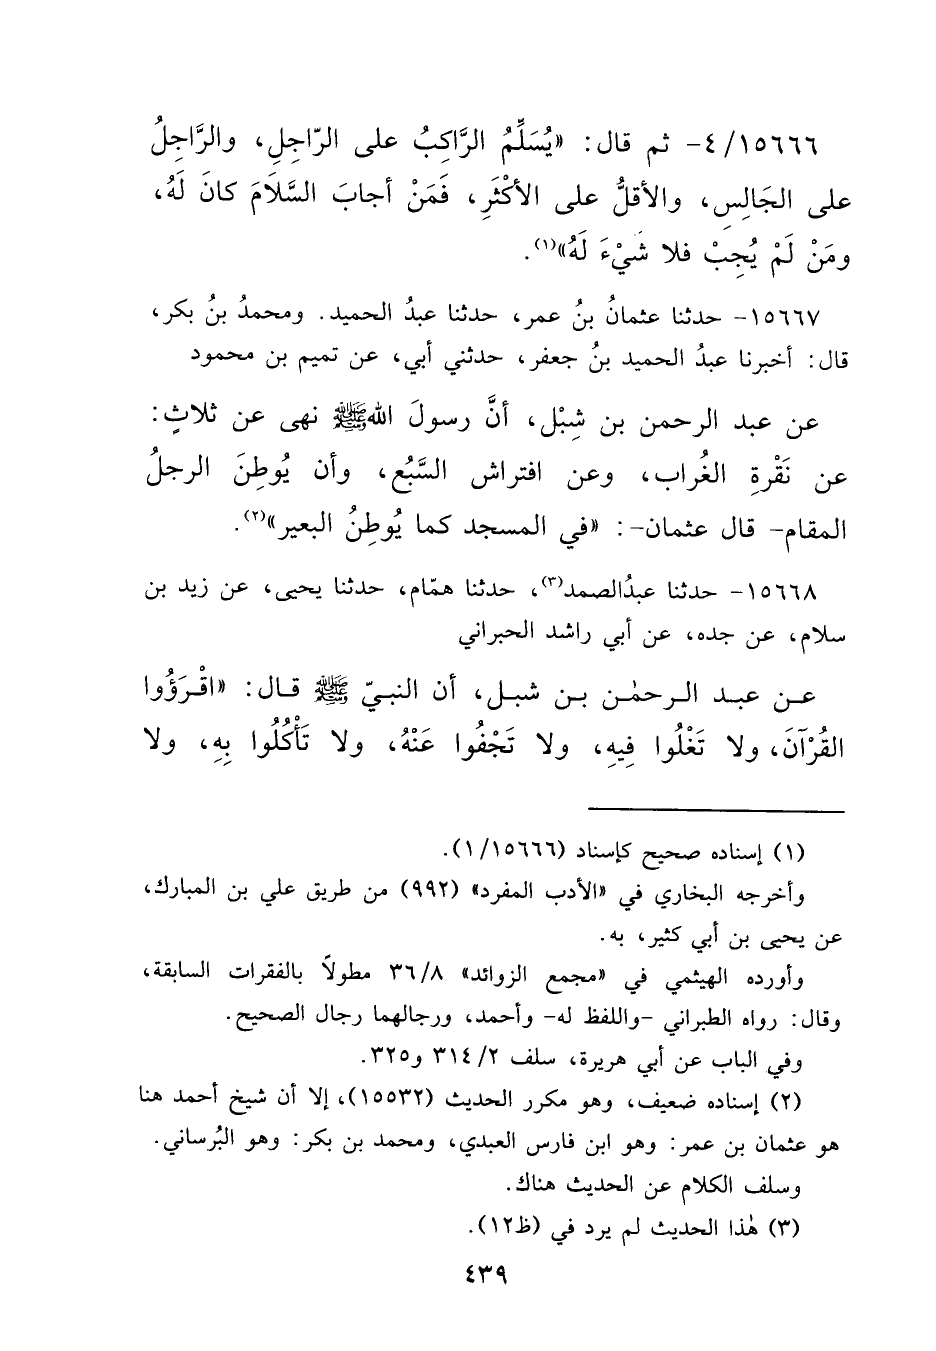 ١٥٦٦٦/٤- ثم قال: «يُسَلِّمُ الرَّاكِبُ على الرّاجِلِ، والرَّاجِلُ
على الجَالِسِ، والأقلُّ على الأكْثَرِ، فَمَنْ أجابَ السَّلَامَ كانَ لَهُ،
ومَنْ لَمْ يُجِبْ فلا شَيْءَ لَهُ»(١).
١٥٦٦٧- حدثنا عثمانُ بنُ عمر، حدثنا عبدُ الحميد. ومحمدُ بنُ بكر،
قال: أخبرنا عبدُ الحميد بنُ جعفر، حدثني أبي، عن تميم بن محمود
عن عبد الرحمن بن شِبْل، أنَّ رسولَ اللهﷺ نهى عن ثلاثٍ:
عن نَقْرةِ الغُراب، وعن افتراش السَّبُع، وأن يُوطِنَ الرجلُ
المقام- قال عثمان-: «في المسجد كما يُوطِنُ البعير»(٢).
١٥٦٦٨- حدثنا عبدُالصمد(٣)، حدثنا همّام، حدثنا يحيى، عن زيد بن
سلام، عن جده، عن أبي راشد الحبراني
عن عبد الرحمٰن بن شبل، أن النبيّ ﷺ قال: «اقْرَؤُوا
القُرْآنَ، ولا تَغْلُوا فِيهِ، ولا تَجْفُوا عَنْهُ، ولا تَأْكُلُوا بِهِ، ولا
(١) إسناده صحيح كإسناد (١٥٦٦٦/١).
وأخرجه البخاري في «الأدب المفرد» (٩٩٢) من طريق علي بن المبارك،
عن يحيى بن أبي كثير، به.
وأورده الهيثمي في «مجمع الزوائد» ٣٦/٨ مطولاً بالفقرات السابقة،
وقال: رواه الطبراني -واللفظ له- وأحمد، ورجالهما رجال الصحيح.
وفي الباب عن أبي هريرة، سلف ٣١٤/٢ و٣٢٥.
(٢) إسناده ضعيف، وهو مكرر الحديث (١٥٥٣٢)، إلا أن شيخ أحمد هنا
هو عثمان بن عمر: وهو ابن فارس العبدي، ومحمد بن بكر: وهو البُرساني.
وسلف الكلام عن الحديث هناك.
(٣) هٰذا الحديث لم يرد في (ظ١٢).
٤٣٩